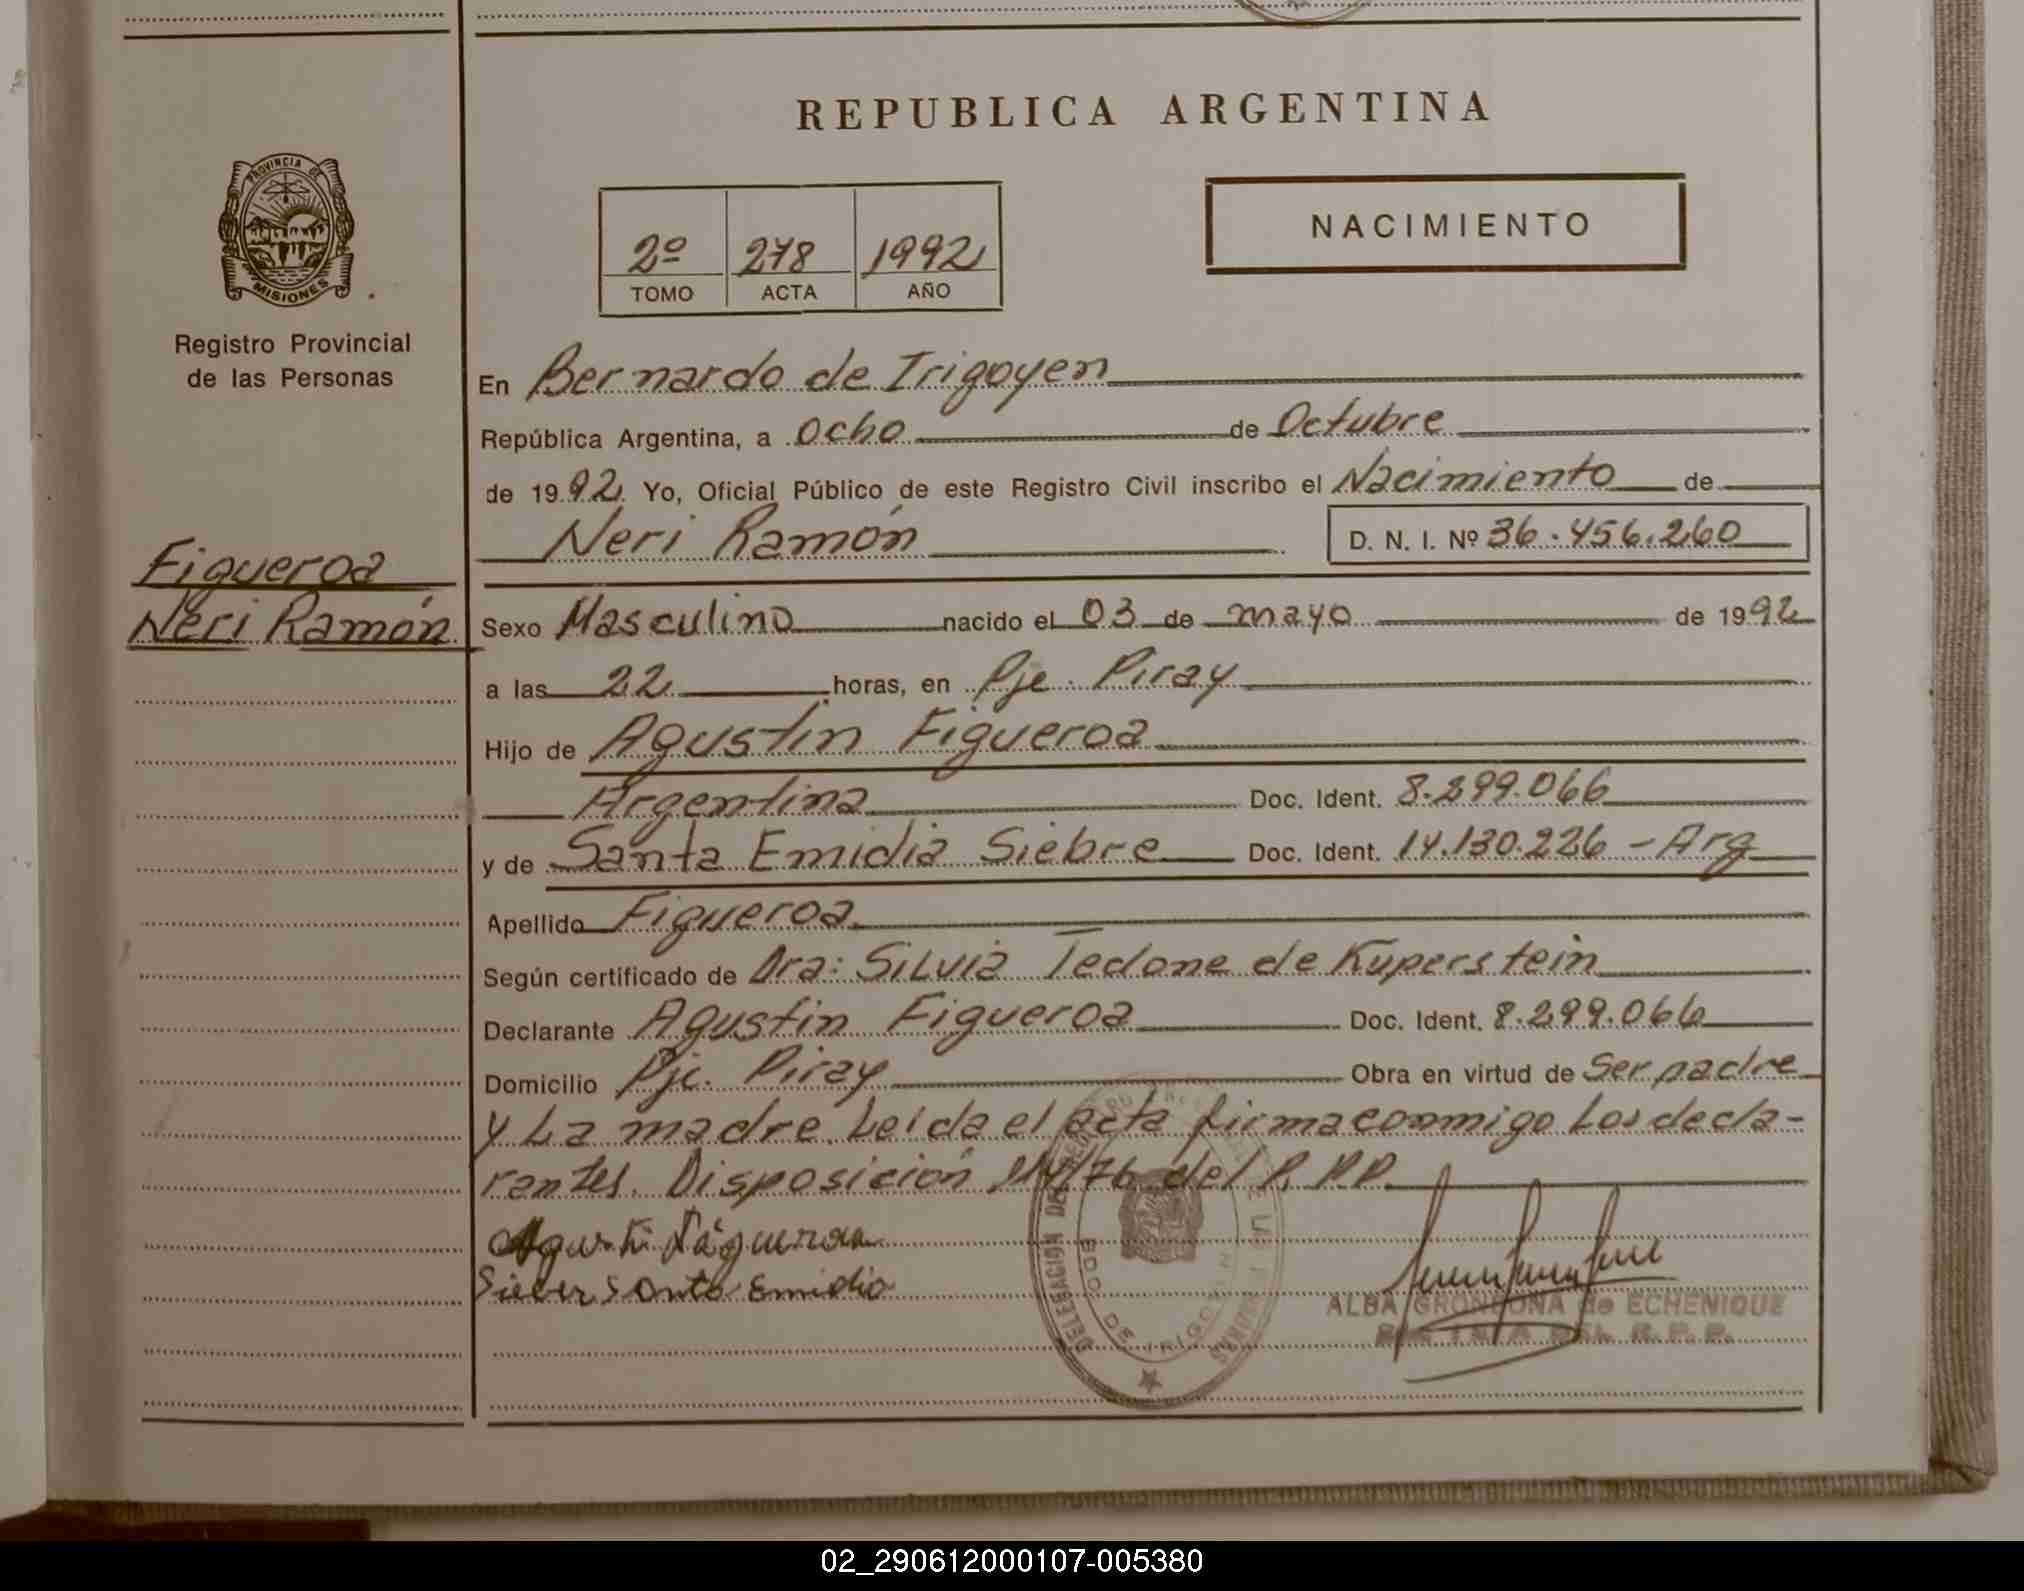 REPUBLICA ARGENTINA
PROVINCIA DE
MISIONES
Registro Provincial
de las Personas
2º 278 1992
TOMO ACTA AÑO
NACIMIENTO
En Bernardo de Irigoyen
República Argentina, a Ocho de Octubre
de 1992. Yo, Oficial Público de este Registro Civil inscribo el Nacimiento de
Neri Ramón D. N. I. Nº 36.456.260
Figueroa
Neri Ramón
Sexo Masculino nacido el 03 de mayo de 1992
a las 22 horas, en Pje. Piray
Hijo de Agustin Figueroa
Argentina Doc. Ident. 8.299.066
y de Santa Emidia Siebre Doc. Ident. 14.130.226 - Arg
Apellido Figueroa
Según certificado de Dra: Silvia Tedone de Kuperstein
Declarante Agustin Figueroa Doc. Ident. 8.299.066
Domicilio Pje. Piray Obra en virtud de Ser padre
y La madre. Leida el acta firma conmigo Los decla-
rantes. Disposición /76 del R.P.P.
Siever Santa Emidia
DELEGACION
BDO. DE IRIGOYEN
ALBA GRONDONA de ECHENIQUE
DEL R.P.P.
02_290612000107-005380